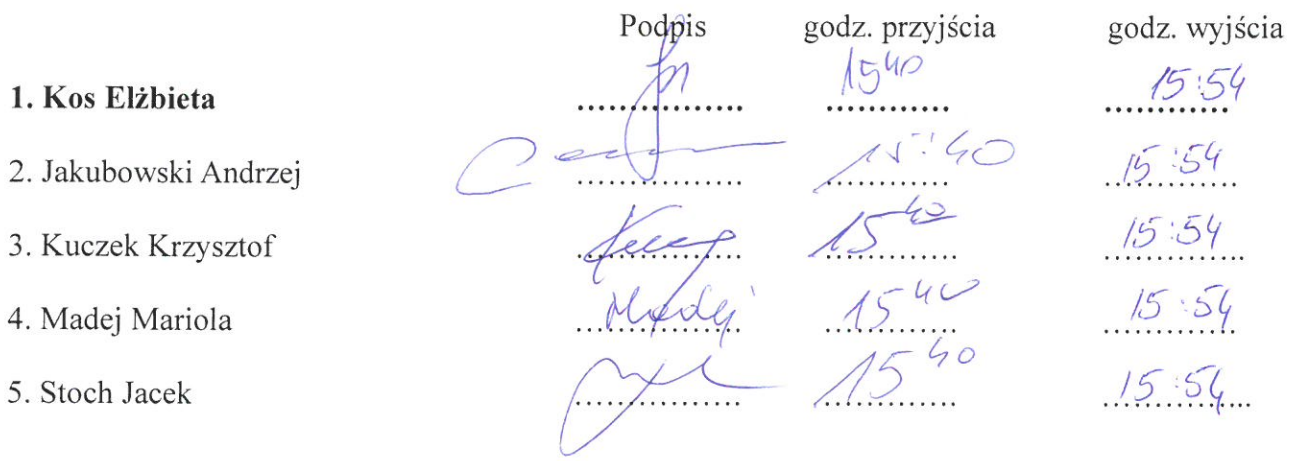 Podpis godz. przyjścia godz. wyjścia
1. Kos Elżbieta .................. 15 40 ............. 15:54 .............
2. Jakubowski Andrzej .................. 15:40 ............. 15:54 ..............
3. Kuczek Krzysztof .................. 15 40 ............. 15:54 ...............
4. Madej Mariola Madej .................. 15 40 .............. 15:54 ..............
5. Stoch Jacek .................. 15 40 .............. 15:54 ................